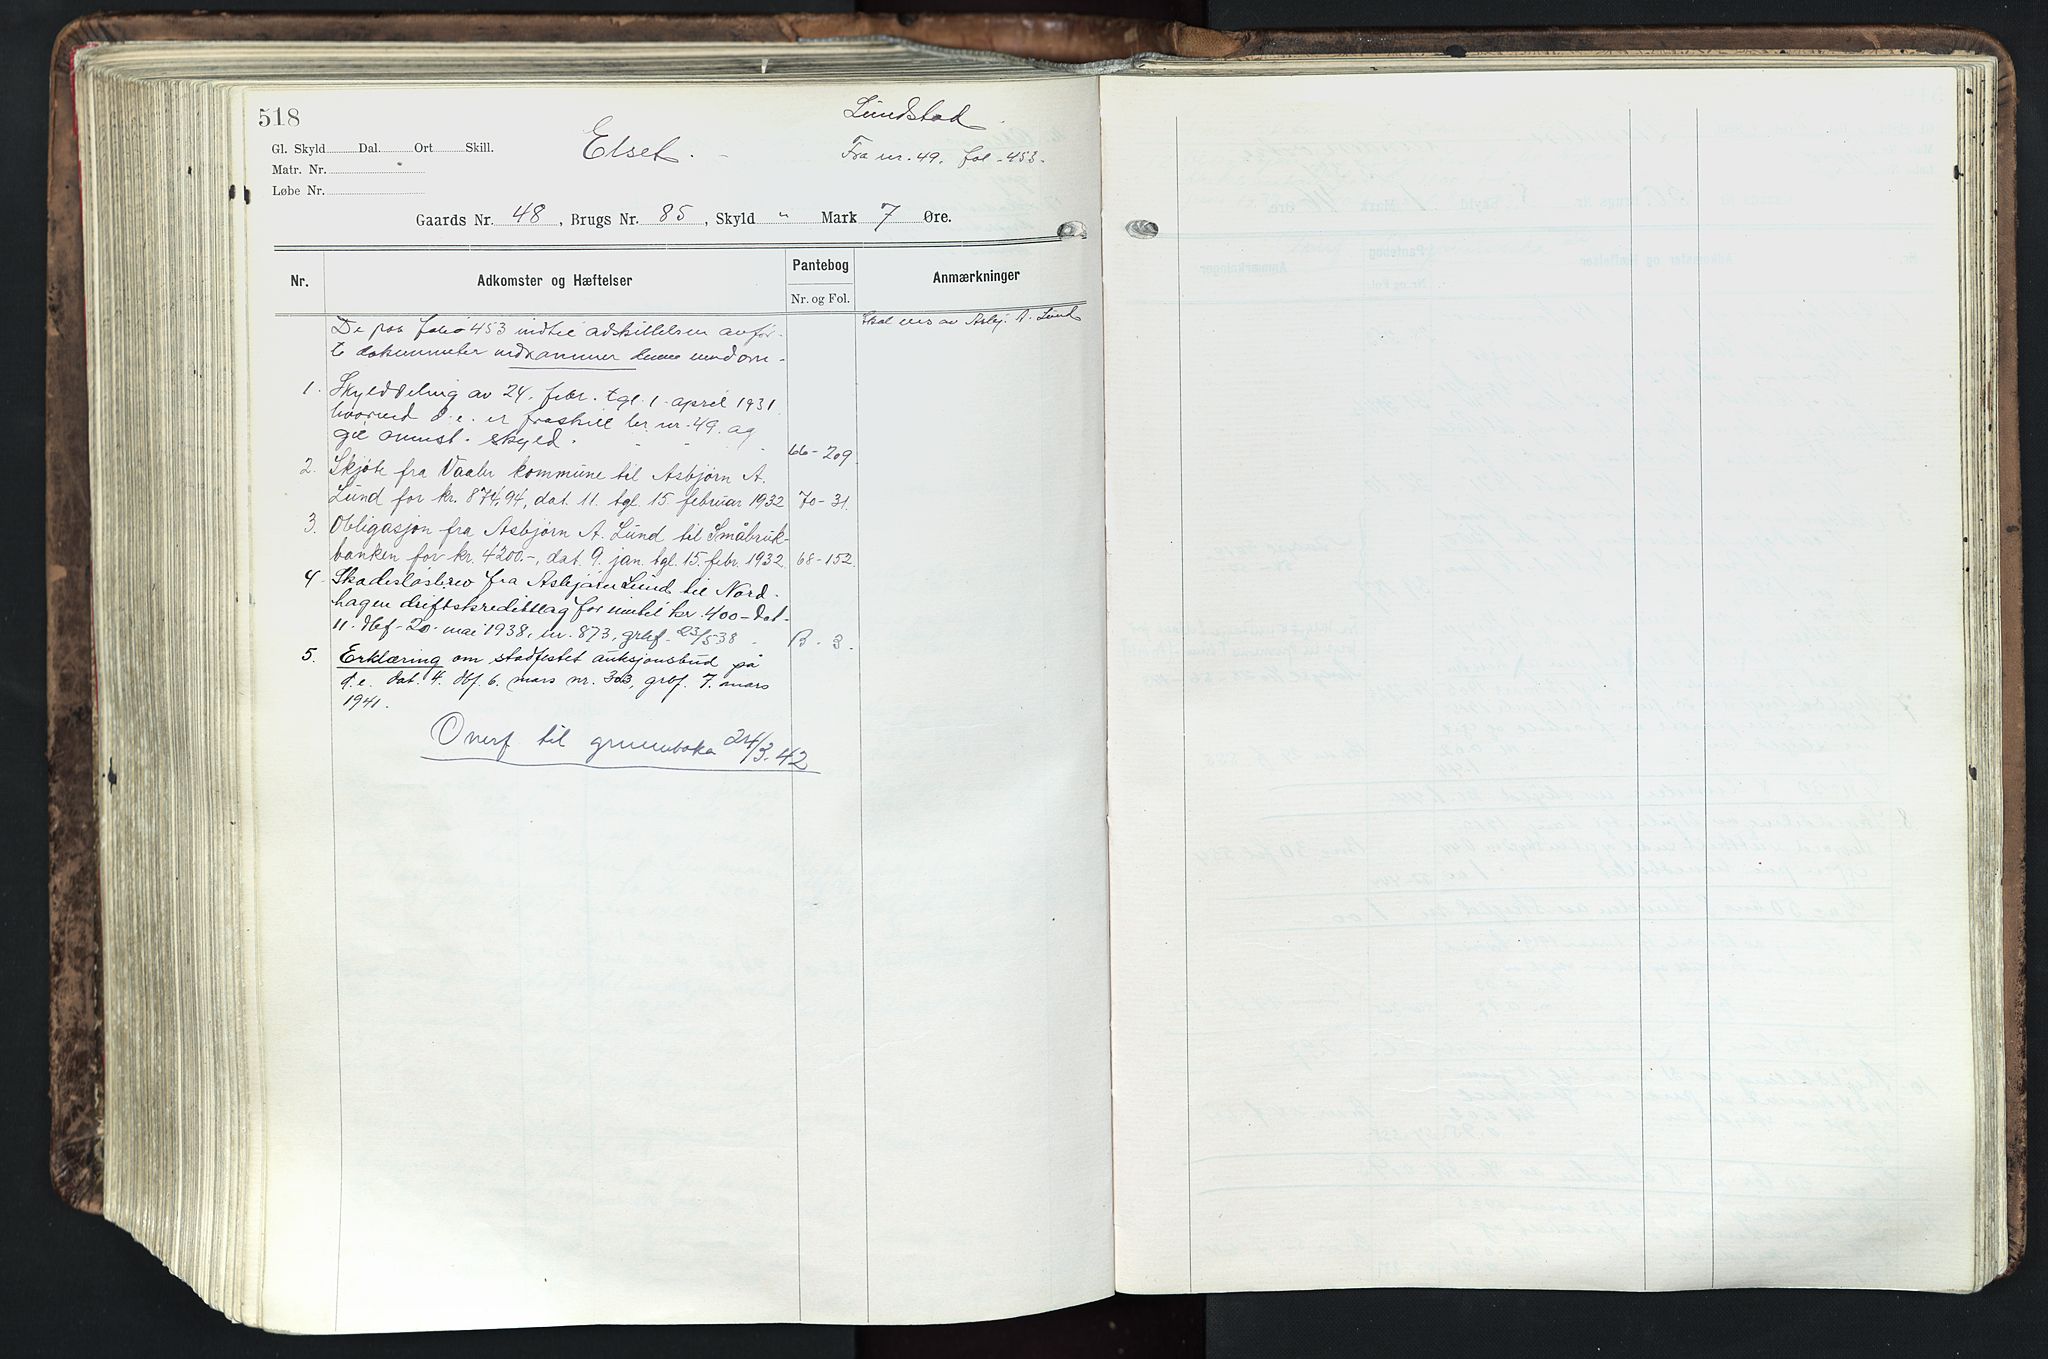 518
Lundstad
Gl. Skyld Dal. Ort Skill.
Elset.
Fra nr. 49. fol - 453.
Matr. Nr.
Løbe Nr.
Gaards Nr. 48, Brugs Nr. 85, Skyld " Mark 7 Øre.
Nr. Adkomster og Hæftelser Pantebog Anmærkninger
Nr. og Fol.
De paa folio 453 indtil adskillelsen anfør- Skal eies av Asbj. A. Lund
te dokumenter vedkommer denne eiendom -
1. Skylddeling av 24. febr. tgl. 1. april 1931.
hvorved d. e. er fraskilt br. nr. 49. og
git ommst. skyld. 66-209
2. Skjøte fra Vaaler kommune til Asbjørn A.
Lund for kr. 874,94, dat. 11. tgl. 15. februar 1932 70-31.
3. Obligasjon fra Asbjørn A. Lund til Småbruk-
banken for kr. 4200.-, dat. 9. jan. tgl. 15. febr. 1932. 68-152.
4. Skadesløsbrev fra Asbjørn Lund til Nord-
hagen driftskredittlag for inntil kr. 400- dat.
11. dbf- 20. mai 1938, nr. 873, grbf. 23/5 38 B. 3.
5. Erklæring om stadfestet auksjonsbud på
d.e. dat. 4. dbf. 6. mars nr. 303, grbf. 7. mars
1941.
Overf til grunnboka 24/3. 42